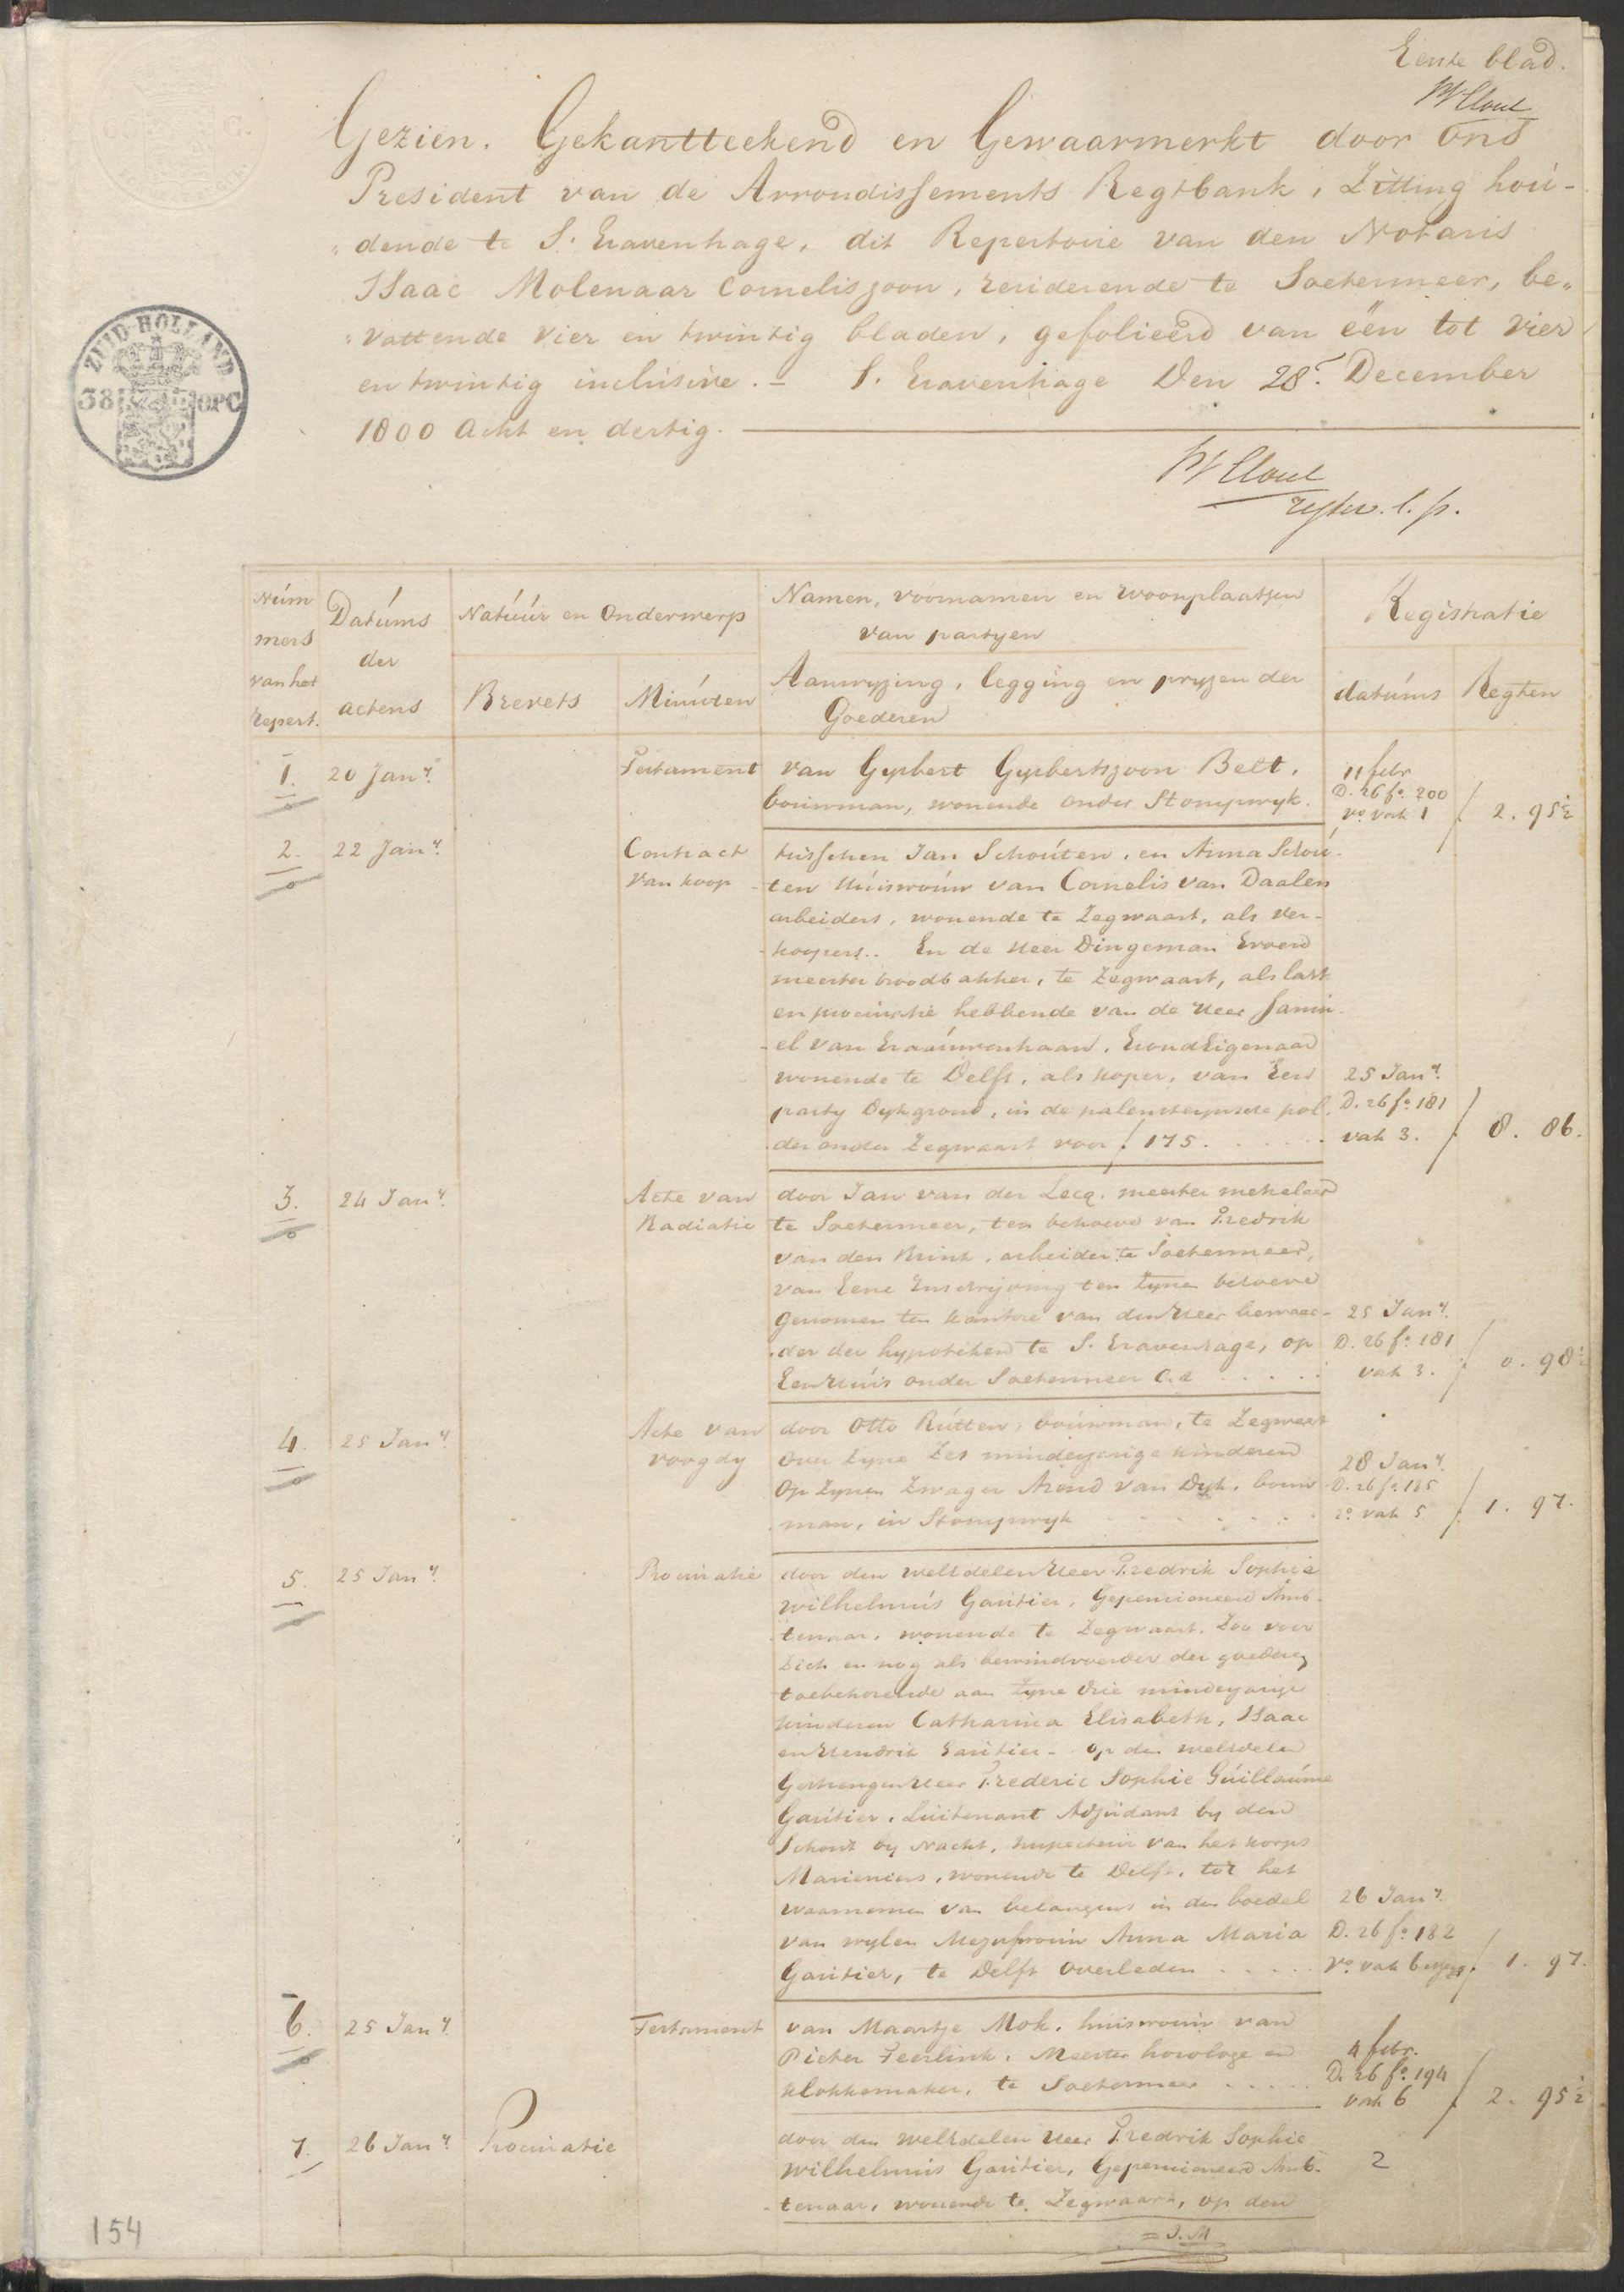 Eerste blad.
Gezien. Gekantteekend en Gewaarmerkt door ons
President van de Arrondissements Regtbank, Zitting hou-
dende te S. Gravenhage, dit Repertoire van den Notaris
Isaac Molenaar Corneliszoon, residerende te Soetermeer, be„
„vattende vier en twintig bladen, gefolieerd van één tot vier
en twintig inclusive. – S. Gravenhage Den 28.e December
1800 Acht en dertig.
ZUID-HOLLAND
38 OPC
Núm
mers
van het
Repert.
Datúms
der
actens
Natúúr en Onderwerp
Brevets
Minúten
Namen, voornamen en woonplaatsen
van partyen
Aanwyzing, legging en pryzen der
Goederen
Registratie
datúms
Regten
1. 20 Jany. Testament van Gysbert Gysbertszoon Belt,
bouwman, wonende onder Stompwyk.
11 febr
D. 26 fo. 200
vo. vak 1 / 2. 95½
2. 22 Jany. Contract tusschen Jan Schoúten, en Anna Schoú-
van koop -ten húisvroúw van Cornelis van Daalen
arbeiders, wonende te Zegwaart, als ver-
-koopers.. En de Heer Dingeman Groen
meester broodbakker, te Zegwaart, als last
en procúratie hebbende van de Heer Samú-
-el van Graaúwenhaan, Grond Eigenaar
wonende te Delft, als koper, van Een 25 Jany.
party Dykgrond, in de palensteynsche pol- D. 26 fo. 181
der onder Zegwaart voor f. 175. vak 3. / 8. 86.
3. 24 Jany. Acte van door Jan van der Lecq. meester metselaar
Radiatie te Soetermeer, ten behoeve van Fredrik
van den Brink, arbeider te Soetermeer,
van Eene Inschryving ten zynen behoeve
genomen ten kantore van den Heer bewaar- 25 Jany.
der der hypotheken te S. Gravenhage, op D. 26 fo. 181
Een Húis onder Soetermeer C.a vak 3. / 0. 98½
4. 25 Jany. Acte van door Otto Rútten, boúwman, te Zegwaart
voogdy over zyne Zes minderjarige kinderen
op zynen Zwager Arend van Dyk, bouw- 28 Jany.
man, in Stompwyk D. 26 fo. 185
ro. vak 5 / 1. 97.
5. 25 Jany. Procúratie door den weledelen Heer Fredrik Sophie
Wilhelmús Gaútier, Gepensioneerd Amb-
tenaar, wonende te Zegwaart, Zoo voor
Zich en nog als bewindvoerder der goederen
toebehorende aan zyne drie minderjarige
kinderen Catharina Elisabeth, Isaac
en Hendrik Gaútier - op den weledelen
Gestrengen Heer Frederic Sophie Gúillaúme
Gaútier, Lúitenant Adjúdant by den
Schout by Nacht, Inspecteur van het korps
Mariniers, wonende te Delft, tot het
waarnemen van belangens in den boedel 26 Jany.
van wylen Mejúfvroúw Anna Maria D. 26 fo. 182
Gaútier, te Delft overleden vo. vak 6 / 1. 97.
6. 25 Jany. Testament van Maartje Mok, huisvroúw van
Pieter Teerlink, Meester horologe en 4 febr.
klokkemaker, te Soetermeer D. 26 fo. 194
vak 6 / 2. 95½
7. 26 Jany. Procúratie door den weledelen Heer Fredrik Sophie
Wilhelmús Gaútier, Gepensioneerd Amb- 2
-tenaar, wonende te Zegwaart, op den
= J. M
154